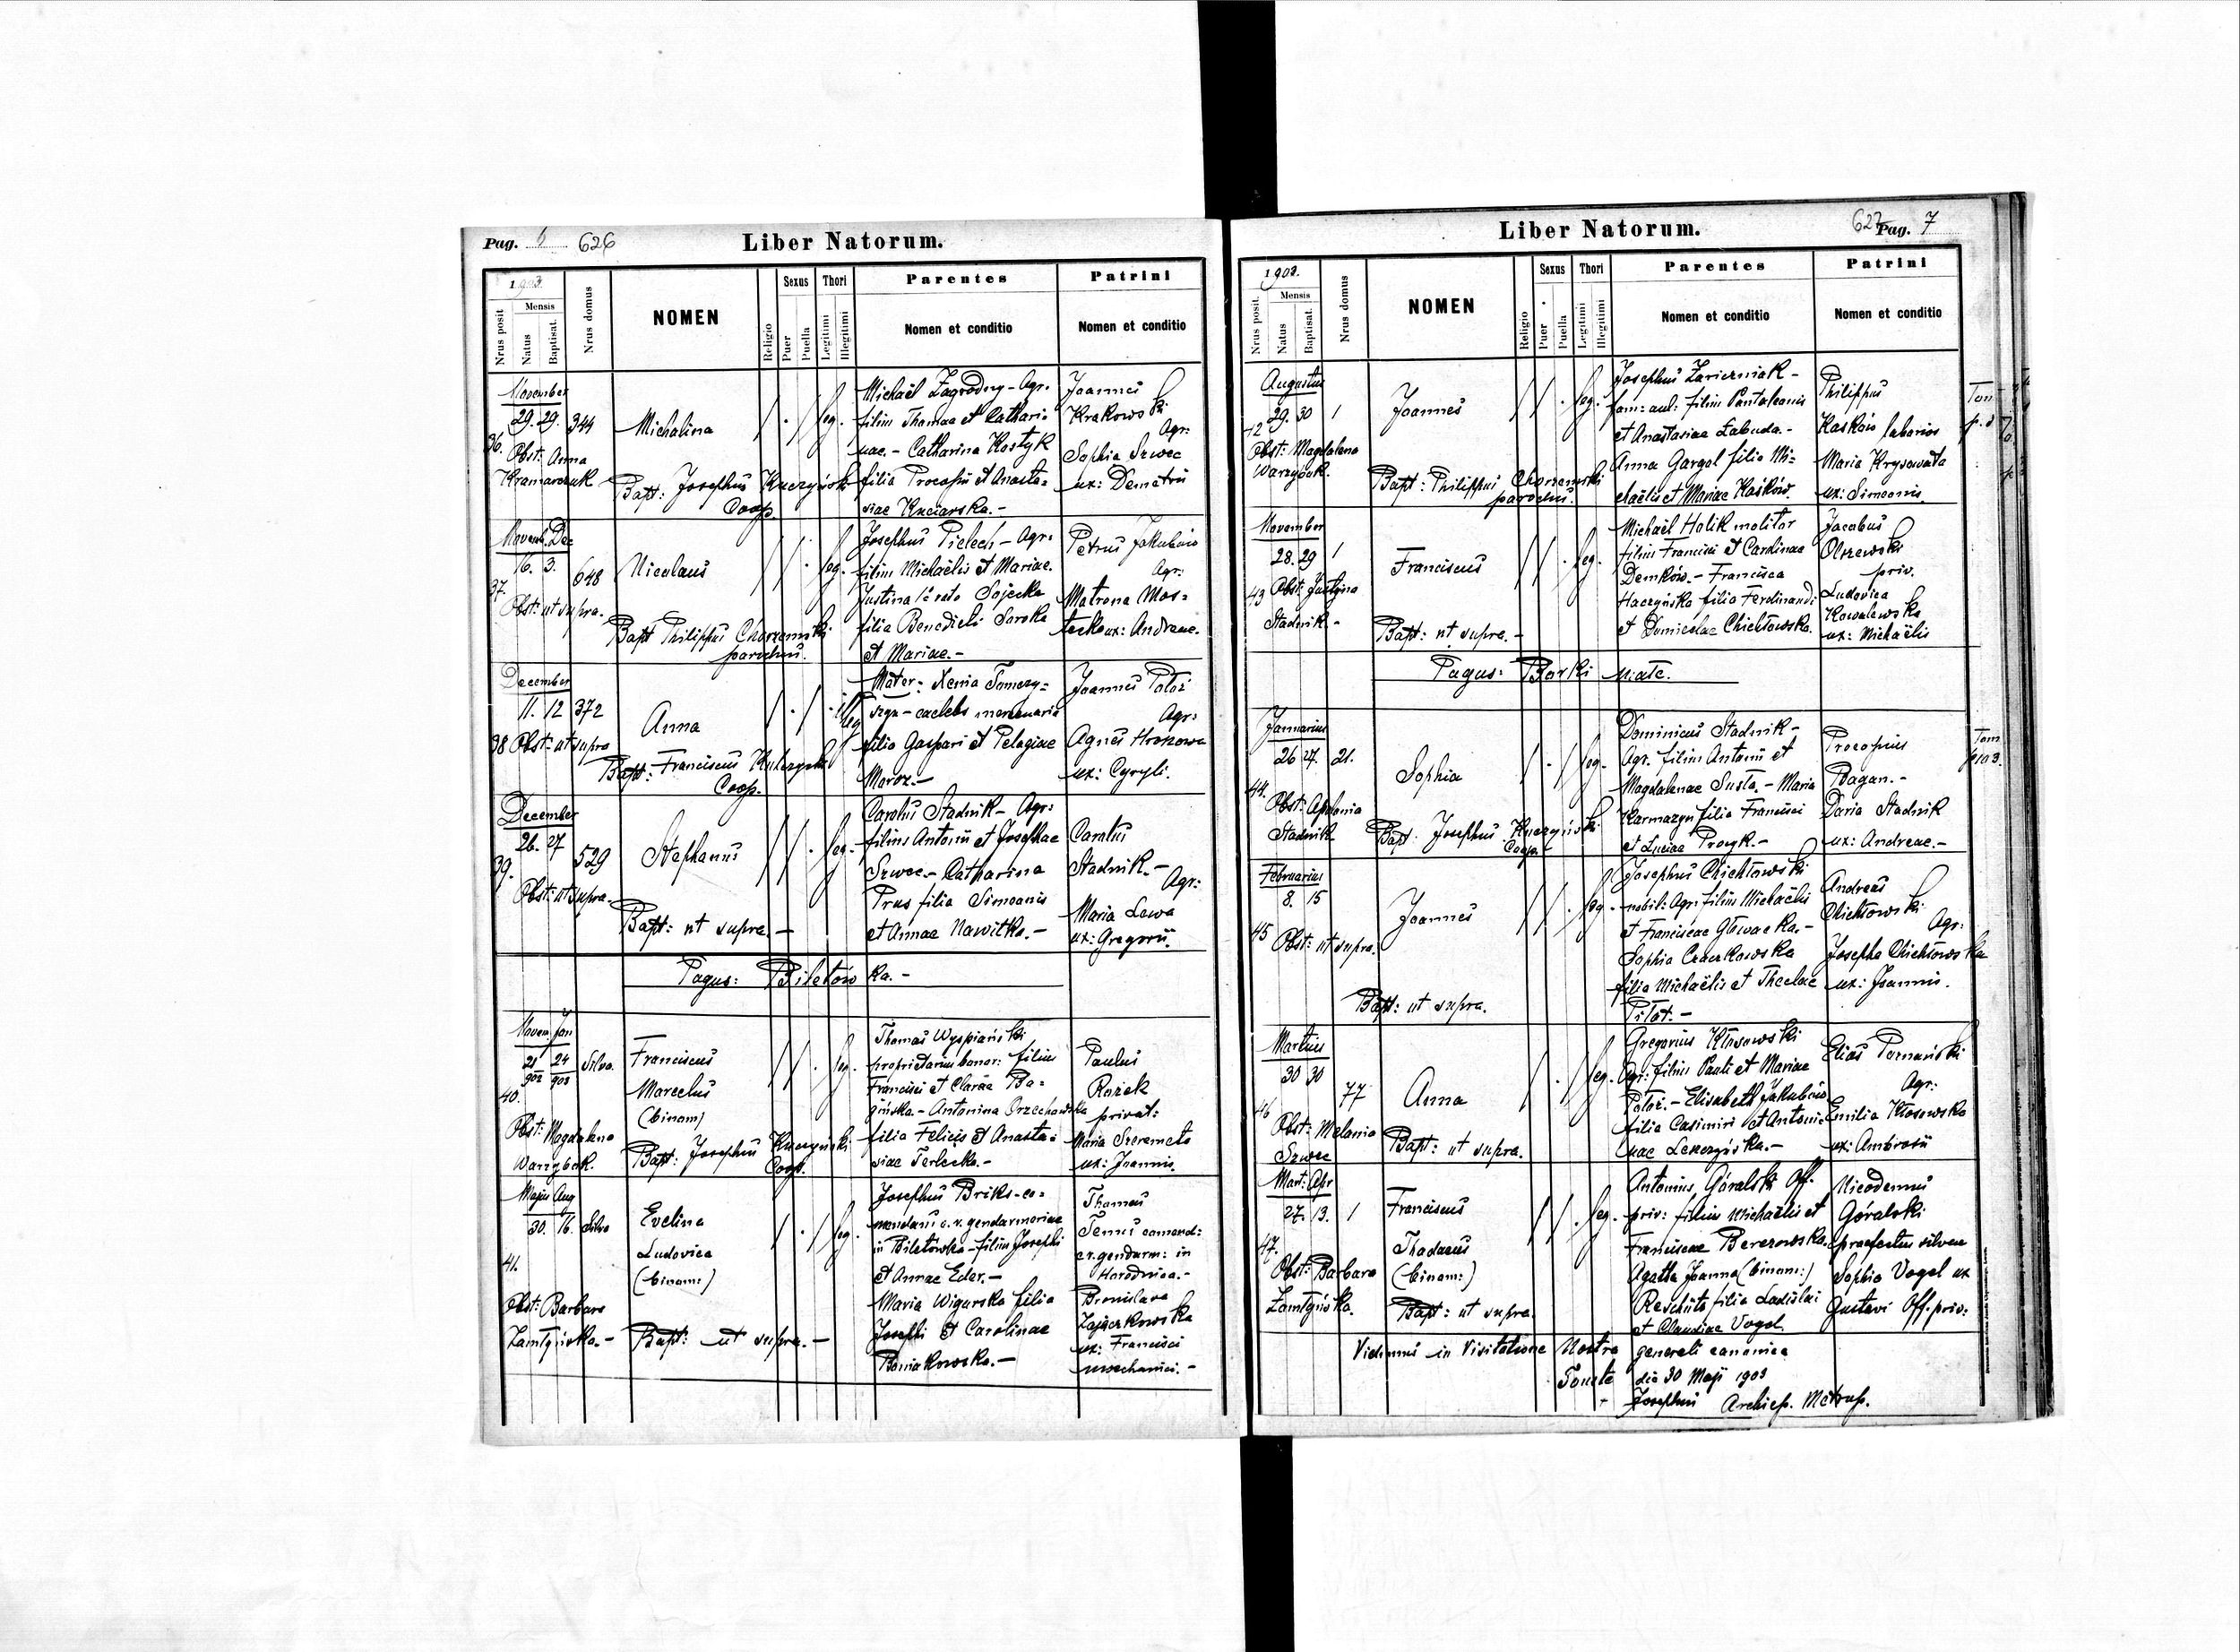 Pag. 6 626 Liber Natorum.
1903.
Nrus posit
Mensis
Natus
Baptisat.
Nrus domus
NOMEN
Religio
Sexus
Puer
Puella
Thori
Legitimi
Illegitimi
Parentes
Nomen et conditio
Patrini
Nomen et conditio
36.
November
29. 29. 344
Obst: Anna
Kramarczuk
Michalina
Bapt: Josephus Kuczyński
Coop.
leg.
Michaël Zagrodny - Agr.
filius Thomae et Cathari-
nae. - Catharina Kostyk
filia Procopii et Anasta=
siae Kuciarska. -
Joannes
Krakowski
Agr:
Sophia Szwec
ux: Demetrii
37.
Novemb. Dec
16. 3. 648
Obst: ut supra.
Nicolaus
Bapt Philippus Chorzemski
parochus.
leg.
Josephus Pielech - Agr:
filius Michaëlis et Mariae.
Justina 1º voto Sojecka
filia Benedicti Sorska
et Mariae. -
Petrus Jakubów
Agr:
Matrona Mos=
tecka ux: Andreae.
38
December
11. 12 372
Obst: ut supra
Anna
Bapt: Franciscus
Coop.
illeg
Mater: Xenia Tomczy=
szyn - caelebs mercenaria
filia Gaspari et Pelagiae
Moroz -
Joannes Potoż
Agr:
Agnes Hronowa
ux: Cyryli.
39.
December
26. 27 529
Obst: ut supra.
Stephanus
Bapt: ut supra. -
leg.
Carolus Stadnik - Agr:
filius Antonii et Josephae
Szwec. - Catharina
Prus filia Simeonis
et Annae Nawitka. -
Carolus
Stadnik. -
Agr:
Maria Lewa
ux: Gregorii.
Pagus: Biletówka. -
40.
Novem. Jan
21 24 Silva.
902 903
Obst: Magdalena
Warzybok.
Franciscus
Marcelus
(binom)
Bapt: Josephus Kuczyński
Coop.
leg.
Thomas Wyspiański
proprietarius bonor: filius
Francisci et Clarae Ba=
zińska. - Antonina Orzechowska
filia Felicis et Anasta=
siae Terlecka. -
Paulus
Rożek
privat:
Maria Szeremeta
ux: Joannis.
41.
Majus Aug
30. 16. Silva
Obst: Barbara
Zamłyńska. -
Evelina
Ludovica
(binom:)
Bapt: ut supra. -
leg.
Josephus Briks - co=
mendans c. r. gendarmeriae
in Biletówka - filius Josephi
et Annae Eder. -
Maria Wigurska filia
Josephi et Carolinae
Boniakowska. -
Thomas
Temus comend:
c. r. gendarm: in
Horodnica. -
Bronislava
Zajączkowska
ux: Francisci
mechanici. -
Liber Natorum. 627 Pag. 7
1903.
Nrus posit.
Mensis
Natus
Baptisat.
Nrus domus
NOMEN
Religio
Sexus
Puer
Puella
Thori
Legitimi
Illegitimi
Parentes
Nomen et conditio
Patrini
Nomen et conditio
42
Augustus
29. 30 1
Obst: Magdalena
Warzybok.
Joannes
Bapt: Philippus Chorzemski
parochus.
leg.
Josephus Zawierniak -
fam: aul: filius Pantaleonis
et Anastasiae Łabuda. -
Anna Gargol filia Mi=
chaëlis et Mariae Kaśków.
Philippus
Kaśków laborios
Maria Krysowata
ux: Simeonis.
Tom
43
November
28. 29 1
Obst: Justyna
Stadnik. -
Franciscus
Bapt: ut supra. -
leg.
Michaël Holik molitor
filius Francisci et Carolinae
Demków. - Francisca
Haczyńska filia Ferdinandi
et Dominicae Chichłowska.
Jacobus
Olszewski
priv.
Ludovica
Kowalewska
ux: Michaëlis
Pagus: Borki małe.
44.
Januarius
26 27. 21.
Obst: Apolonia
Stadnik
Sophia
Bapt. Josephus Kuczyński
Coop.
leg.
Dominicus Stadnik -
Agr. filius Antonii et
Magdalenae Susła. - Maria
Karmazyn filia Francisci
et Luciae Procyk. -
Procopius
Bagan. -
Daria Stadnik
ux: Andreae. -
Tom
p 103.
45
Februarius
8. 15
Obst: ut supra.
Joannes
Bapt: ut supra.
leg.
Josephus Chichłowski
nobil: Agr: filius Michaëlis
et Franciscae Głowacka. -
Sophia Czaczkowska
filia Michaëlis et Theclae
Pilot. -
Andreas
Chichłowski
Agr:
Josepha Chichłowska
ux: Joannis.
46
Martius
30 30 77
Obst: Melania
Szwec
Anna
Bapt: ut supra.
leg.
Gregorius Kłosowski
Agr: filius Pauli et Mariae
Potoż. - Elisabeth Jakubów
filia Casimiri et Antoni-
nae Leszczyńska. -
Elias Poznański
Agr:
Emilia Kłosowska
ux: Ambrosii
47.
Mart: Apr
27. 13. 1
Obst: Barbara
Zamłyńska.
Franciscus
Thadaeus
(binom:)
Bapt: ut supra.
leg.
Antonius Góralski Off.
priv: filius Michaëlis et
Franciscae Berezowska.
Agatha Joanna (binom:)
Reschüta filia Ladislai
et Claudiae Vogel.
Nicodemus
Góralski
praefectus silvae
Sophia Vogel ux
Gustavi Off. priv:
Vidimus in Visitatione Nostra generali canonica
Touste die 30 Maji 1903
Josephus Archiep. Metrop.